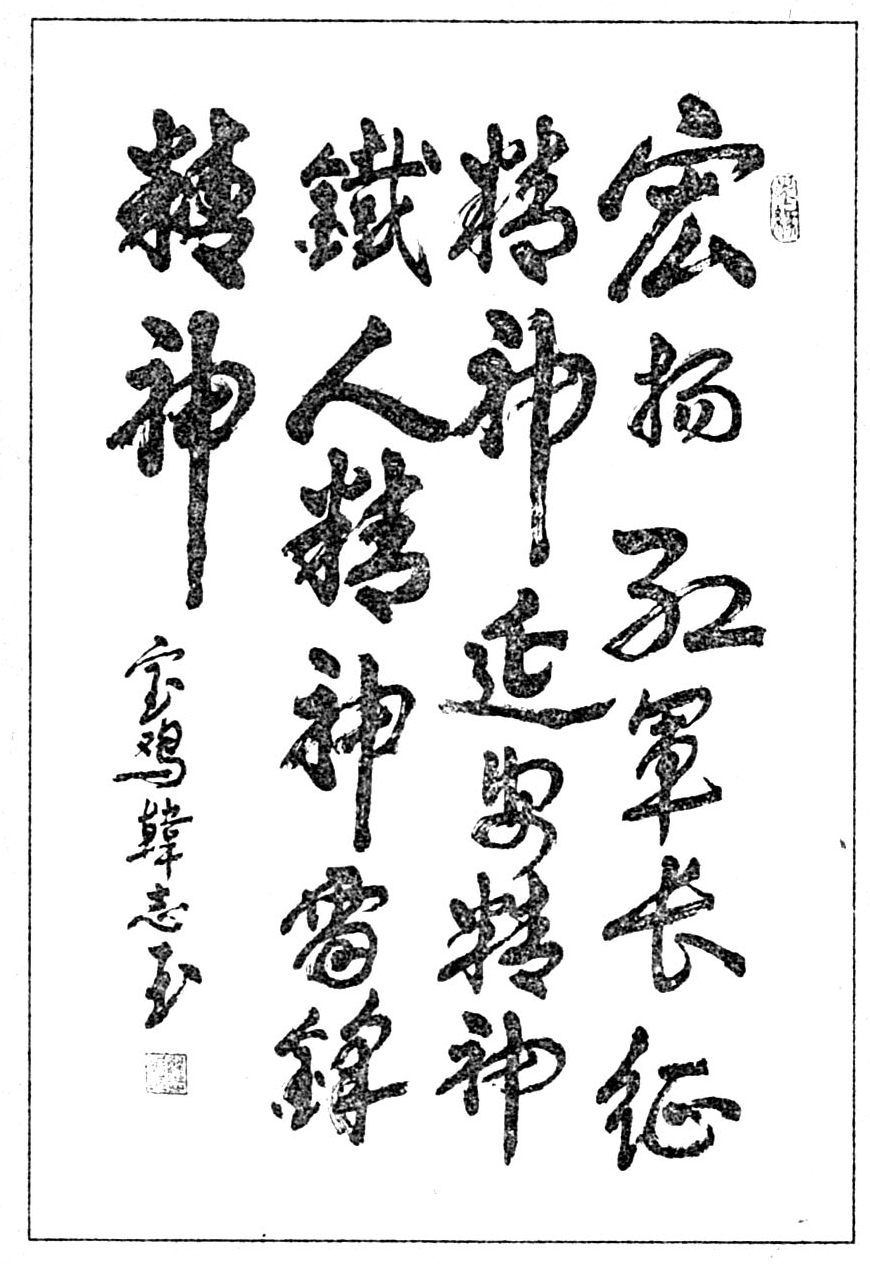 宏扬红军长征
精神延安精神
鐵人精神雷锋
精神
宝鸡韓志玉